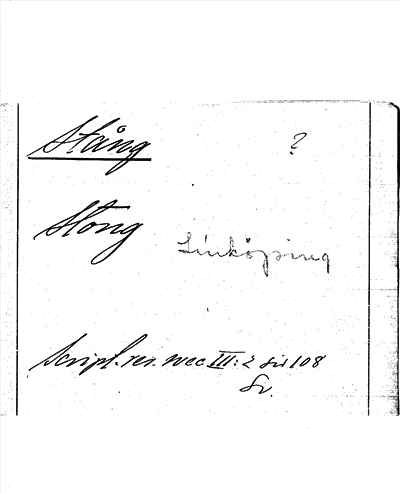 Stång ?
Stong Linköping
Script. rer. svec III: 2 sid 108
Sv.